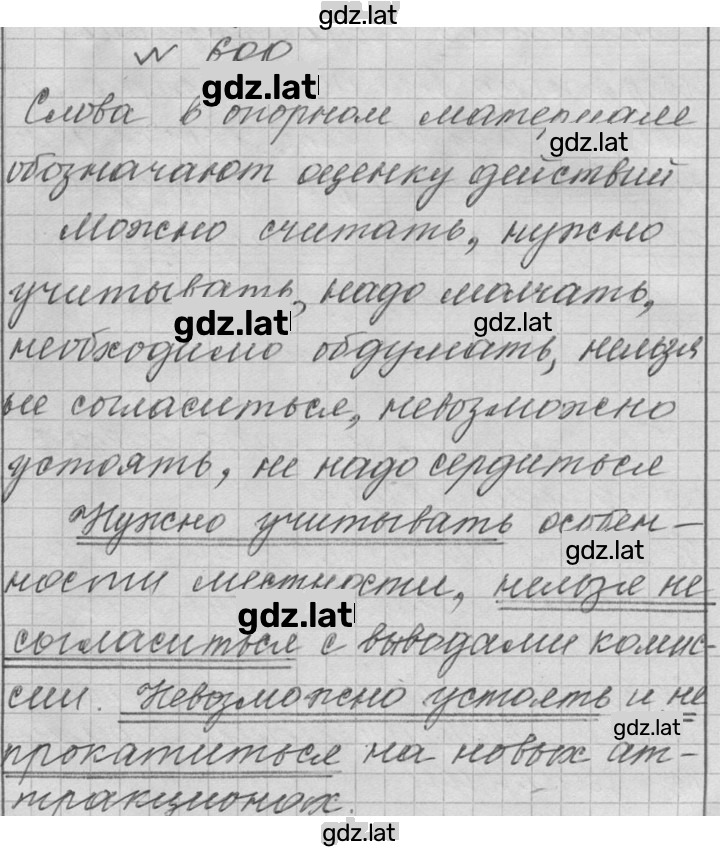 gdz.lat
№ 600
gdz.lat
Слова в опорном материале
gdz.lat
обозначают оценку действий
Можно считать, нужно
учитывать, надо молчать,
gdz.lat
gdz.lat
необходимо обдумать, нельзя
не согласиться, невозможно
устоять, не надо сердиться
Нужно учитывать особен-
gdz.lat
ности местности, нельзя не
gdz.lat
согласиться с выводами комис-
сии. Невозможно устоять и не
gdz.lat
прокатиться на новых ат-
тракционах.
gdz.lat